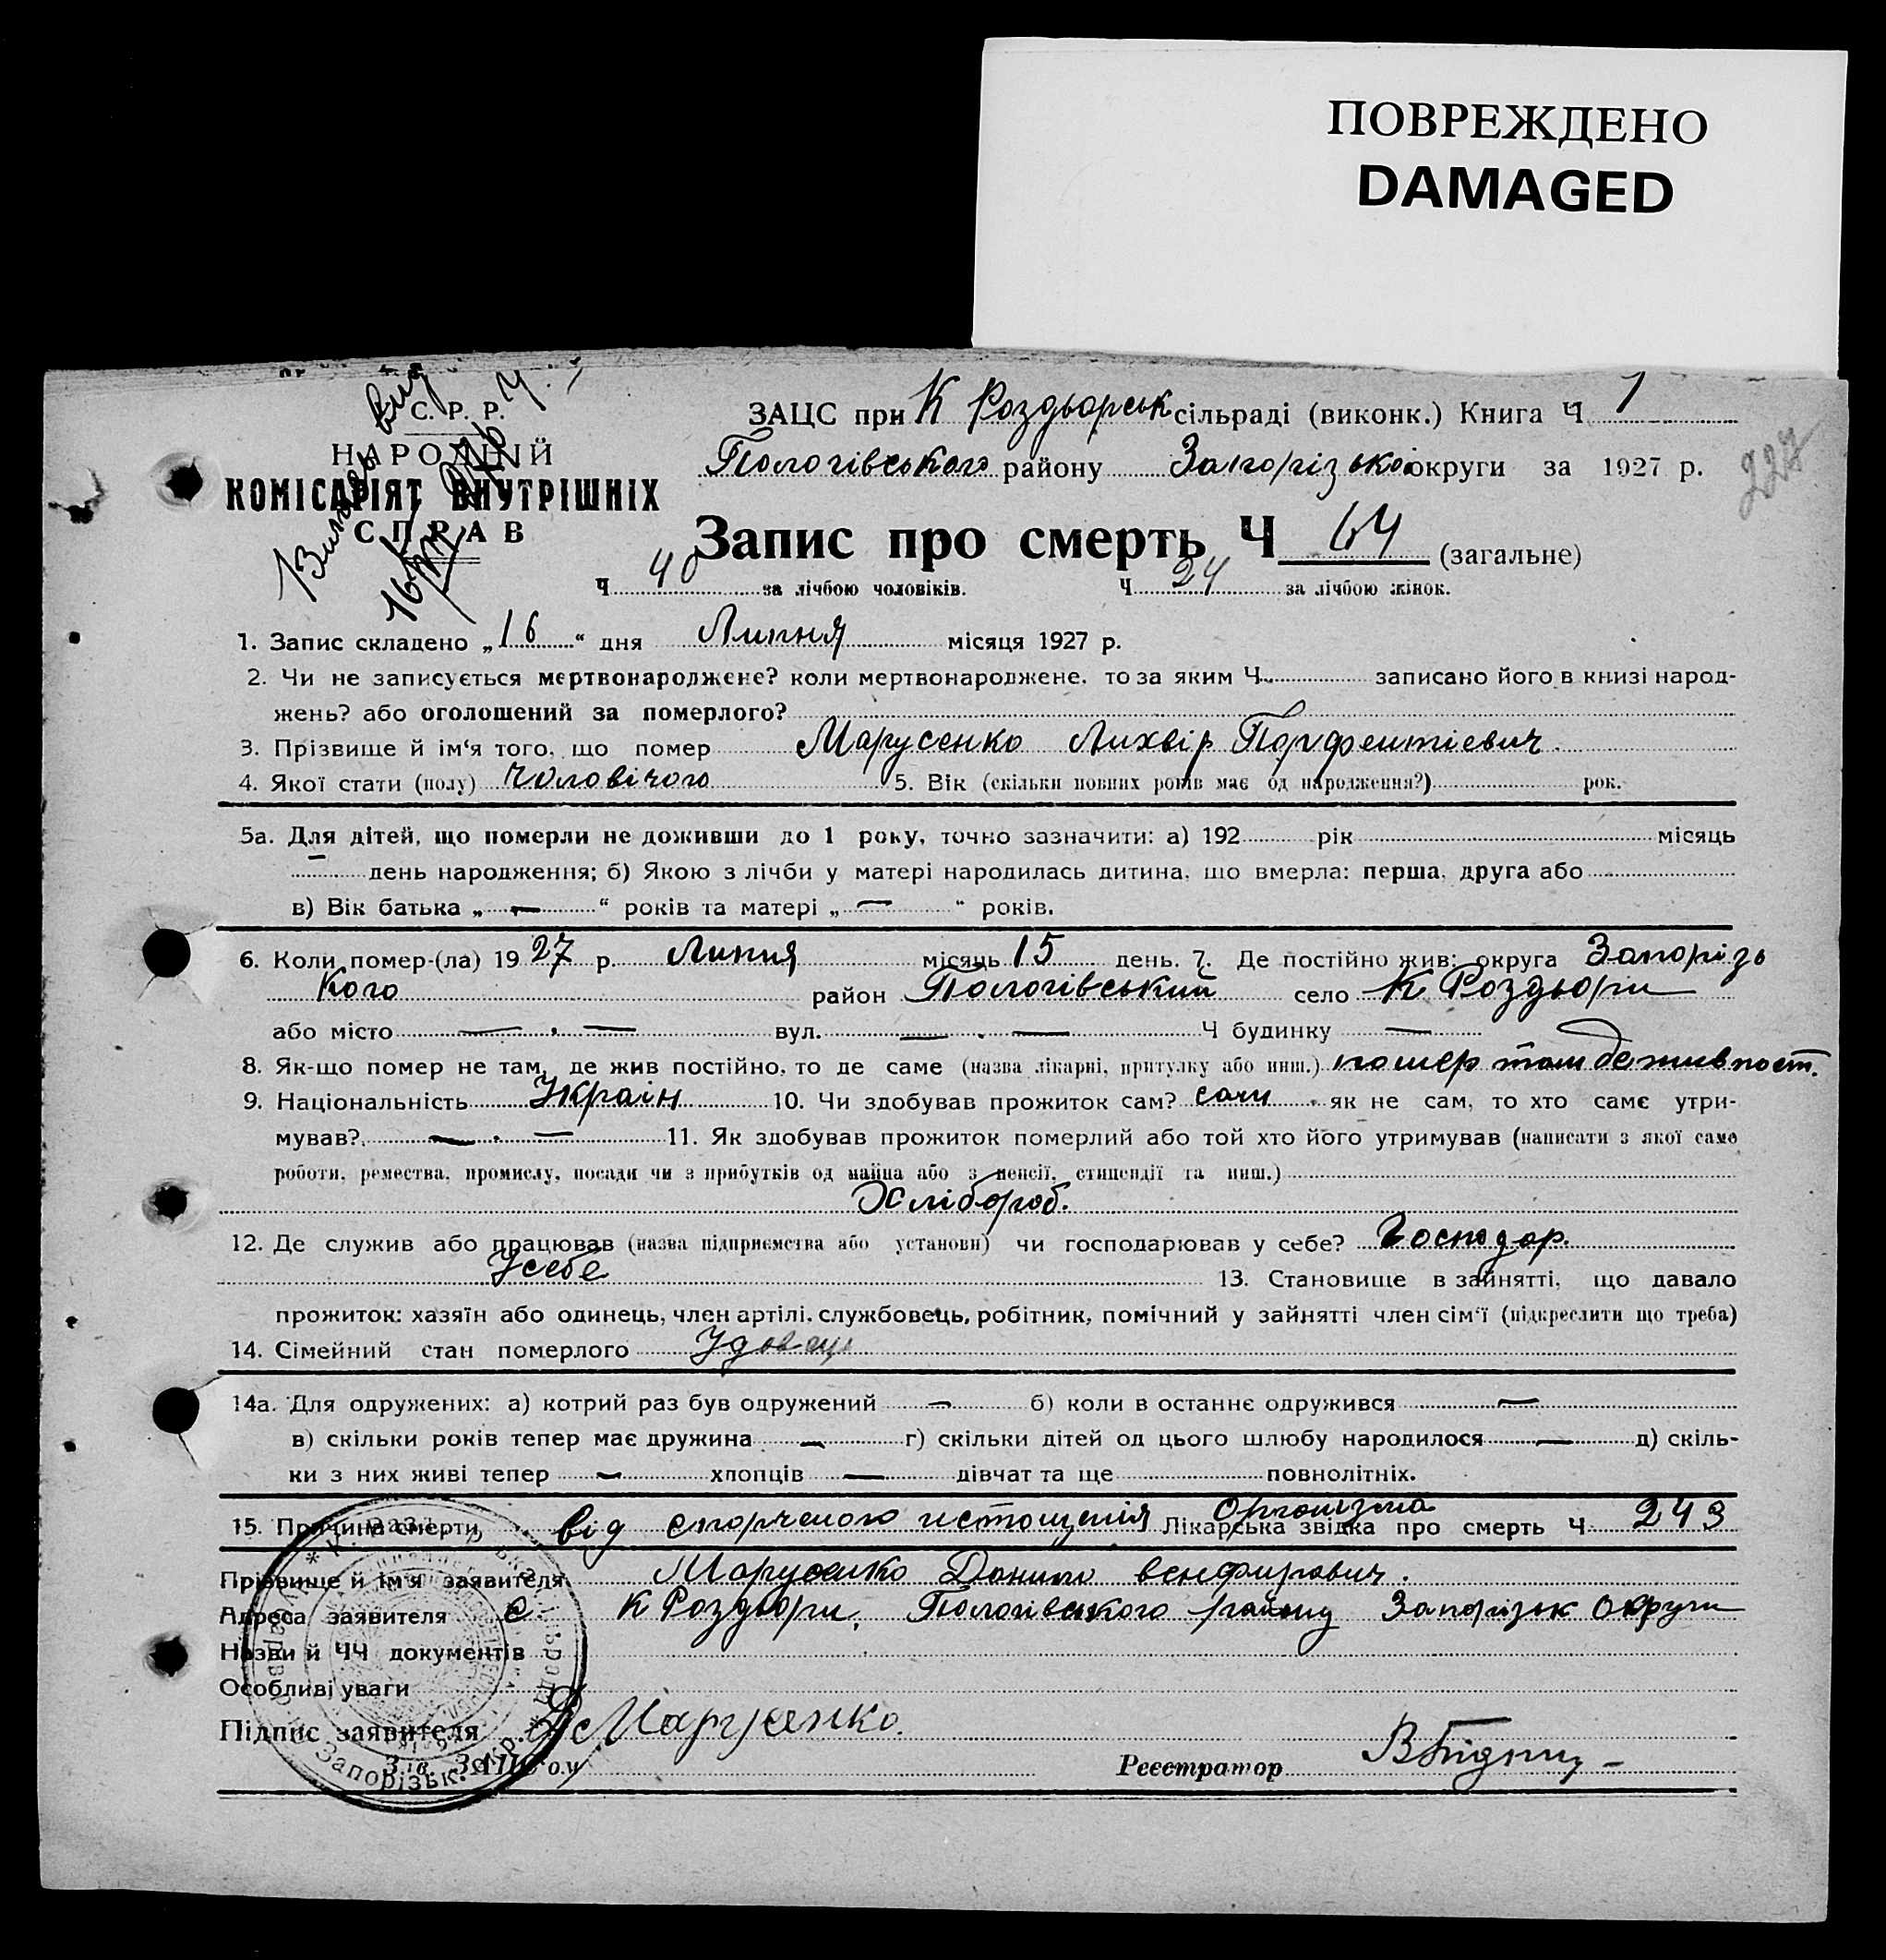 ПОВРЕЖДЕНО
DAMAGED
С. Р. Р.
НАРОДНІЙ
КОМІСАРІЯТ ВНУТРІШНІХ
СПРАВ
ЗАЦС при К Роздорськ сільраді (виконк.) Книга Ч 1
Пологівського району Запорізької округи за 1927 р.
227
Запис про смерть Ч 64 (загальне)
Ч 40 за лічбою чоловіків. Ч 24 за лічбою жінок.
1. Запис складено „16“ дня Липня місяця 1927 р.
2. Чи не записується мертвонароджене? коли мертвонароджене, то за яким Ч. записано його в книзі народ-
жень? або оголошений за померлого?
3. Прізвище й ім‘я того, що помер Марусенко
4. Якої стати (полу) Чоловічого 5. Вік (скільки повних років має од народження?) рок.
5а. Для дітей, що померли не доживши до 1 року, точно зазначити: а) 192 рік місяць
— день народження; б) Якою з лічби у матері народилась дитина, що вмерла: перша, друга або
в) Вік батька „—“ років та матері „—“ років.
6. Коли помер-(ла) 1927 р. Липня місяць 15 день. 7. Де постійно жив: округа Запорізь
кого район Пологівський село К Роздори
або місто — . — вул. — . — Ч будинку —
8. Як-що помер не там, де жив постійно, то де саме (назва лікарні, притулку або инш.) помер там де жив пост.
9. Національність Україн 10. Чи здобував прожиток сам? сам . як не сам, то хто саме утри-
мував? — . — 11. Як здобував прожиток померлий або той хто його утримував (написати з якої само
роботи, ремества, промислу, посади чи з прибутків од майна або з пенсії, стипендії та инш.)
Хлібороб.
12. Де служив або працював (назва підприємства або установи) чи господарював у себе? Господар.
Усебе 13. Становище в зайнятті, що давало
прожиток: хазяїн або одинець, член артілі, службовець, робітник, помічний у зайнятті член сім‘ї (підкреслити що треба)
14. Сімейний стан померлого Удовец
14а. Для одружених: а) котрий раз був одружений — б) коли в останнє одружився —
в) скільки років тепер має дружина — г) скільки дітей од цього шлюбу народилося — д) скіль-
ки з них живі тепер — хлопців — дівчат та ще повнолітніх.
15. Причина смерти від истощенія Организма Лікарська звідка про смерть Ч 243
Прізвище й ім‘я заявителя Марусенко Данило
Адреса заявителя с. К Роздори, Пологівського району Запорізьк Округи
Назви й ЧЧ документів
Особливі уваги
Підпис заявителя Марусенко.
Зав. ЗАЦС‘ом Реєстратор
Запорізьк. окр.